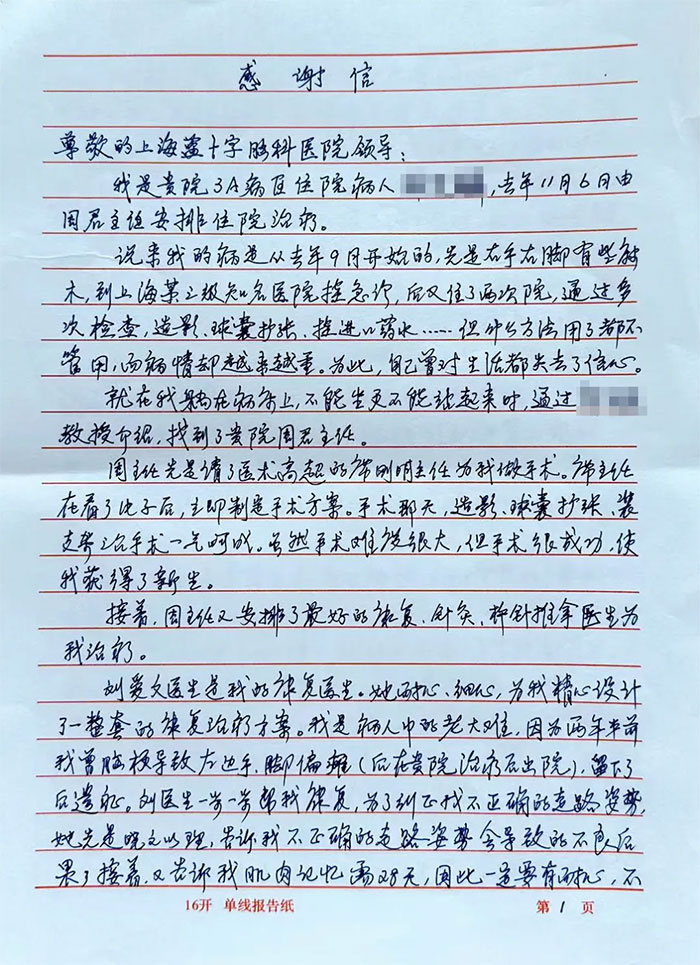 感谢信
尊敬的上海蓝十字脑科医院领导:
我是贵院3A病区住院病人 ,去年11月6日由
周君主任安排住院治疗。
说来我的病是从去年9月开始的,先是右手右脚有些麻
木,到上海某三级知名医院挂急诊,后又住了两次院,通过多
次检查,造影、球囊扩张、挂进口药水……但什么方法用了都不
管用,而病情却越来越重。为此,自己曾对生活都失去了信心。
就在我躺在病床上,不能坐更不能站起来时,通过
教授介绍,找到了贵院周君主任。
周主任先是请了医术高超的 刚明主任为我做手术。 主任
在看了片子后,立即制定手术方案。手术那天,造影、球囊扩张、装
支架三治手术一气呵成。虽然手术难度很大,但手术很成功,使
我获得了新生。
接着,周主任又安排了最好的康复、针灸、抑针推拿医生为
我治疗。
刘爱文医生是我的康复医生。她耐心、细心,为我精心设计
了一整套的康复治疗方案。我是病人中的老大难,因为两年半前
我曾脑梗导致左边手、脚偏瘫(后在贵院治疗后出院),留下了
后遗症。刘医生一步一步帮我康复,为了纠正我不正确的走路姿势,
她先是晓之以理,告诉我不正确的走路姿势会导致的不良后
果,接着,又告诉我肌肉记忆需28天,因此一定要有耐心,不
16开 单线报告纸
第 1 页